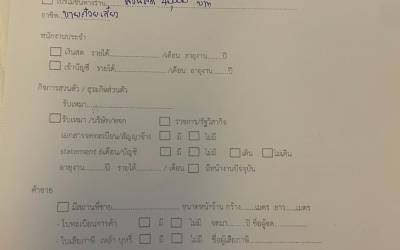 ☐ โปรโมชั่นทางร้าน ส่วนลด 40,000 บาท
อาชีพ ขายก๋วยเตี๋ยว
พนักงานประจำ
☐ เงินสด รายได้............../เดือน อายุงาน......ปี
☐ เข้าบัญชี รายได้............../เดือน อายุงาน......ปี
กิจการส่วนตัว / ธุรกิจส่วนตัว
รับเหมา..............
☐ รับเหมา/บริษัท/หจก ☐ ราชการ/รัฐวิสากิจ
เอกสารจดทะเบียน/สัญญาจ้าง ☐ มี ☐ ไม่มี
statement 6เดือน/บัญชี ☐ มี ☐ ไม่มี ☐ เดิน ☐ ไม่เดิน
อายุงาน........ปี รายได้............/ เดือน ☐ มีหน้างานปัจจุบัน
ค้าขาย
☐ มีสถานที่ขาย.............. ขนาดหน้าร้าน กว้าง......เมตร ยาว......เมตร
- ใบทะเบียนการค้า ☐ มี ☐ ไม่มี จดมา......ปี ชื่อผู้จด..........
- ใบเสียภาษี เหล้า บุหรี่ ☐ มี ☐ ไม่มี ชื่อผู้เสียภาษี..........